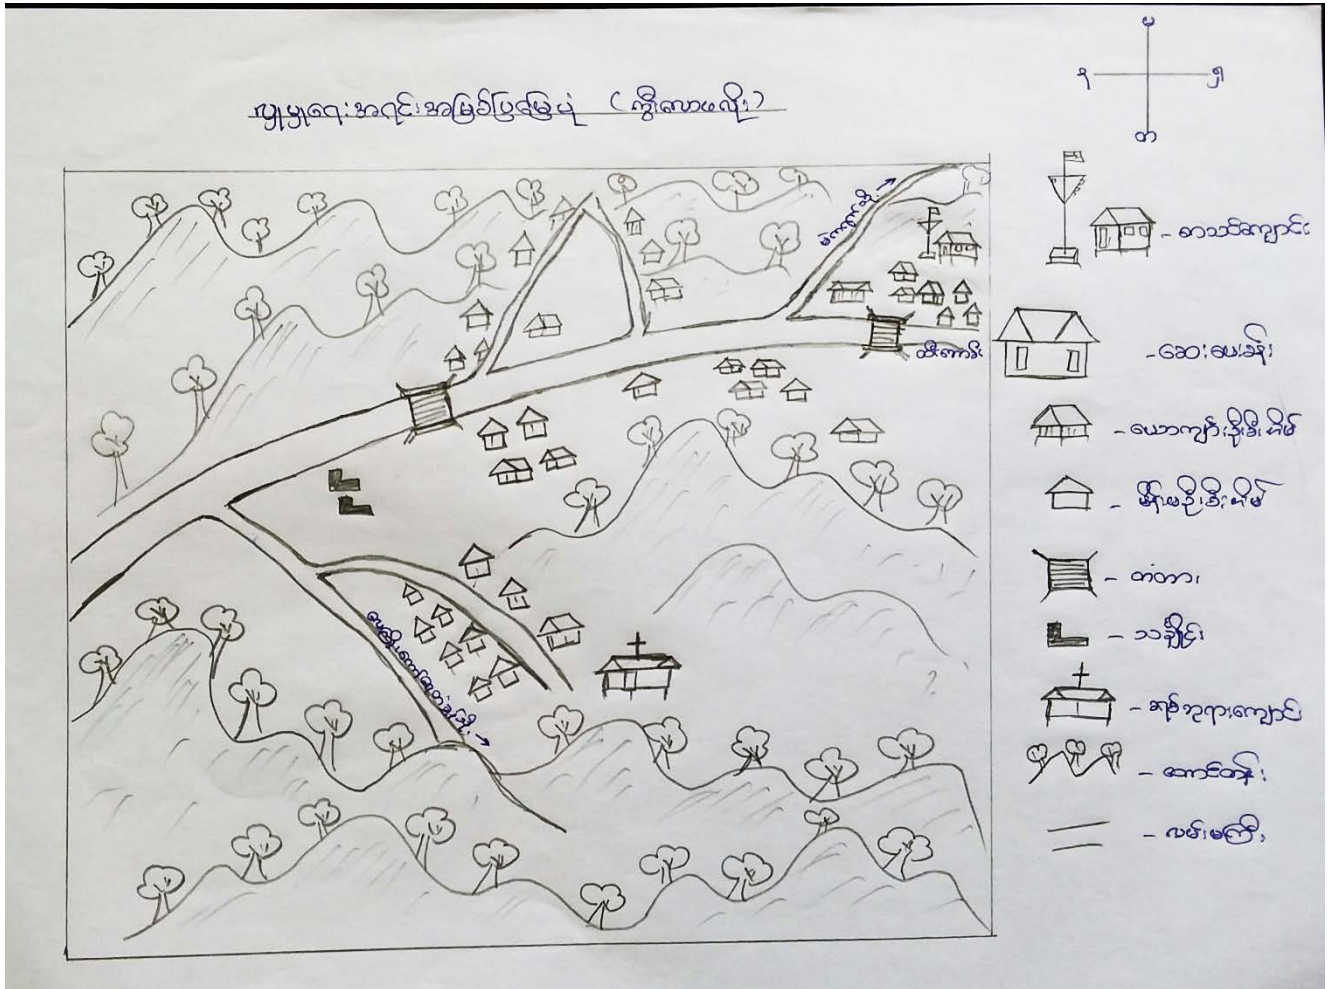 လူမှုရေးအရင်းအမြစ်ပြမြေပုံ (ကွီးလာဖလိုး)
မ
ရ
ရှ
တ
- စာသင်ကျောင်း
- ဆေးပေးခန်း
- ယောကျာ်းဦးစီးအိမ်
- မိန်းမဦးစီးအိမ်
- တံတား
- သချိုင်း
- ခရစ်ဘုရားကျောင်း
- တောင်တန်း
- လမ်းမကြီး